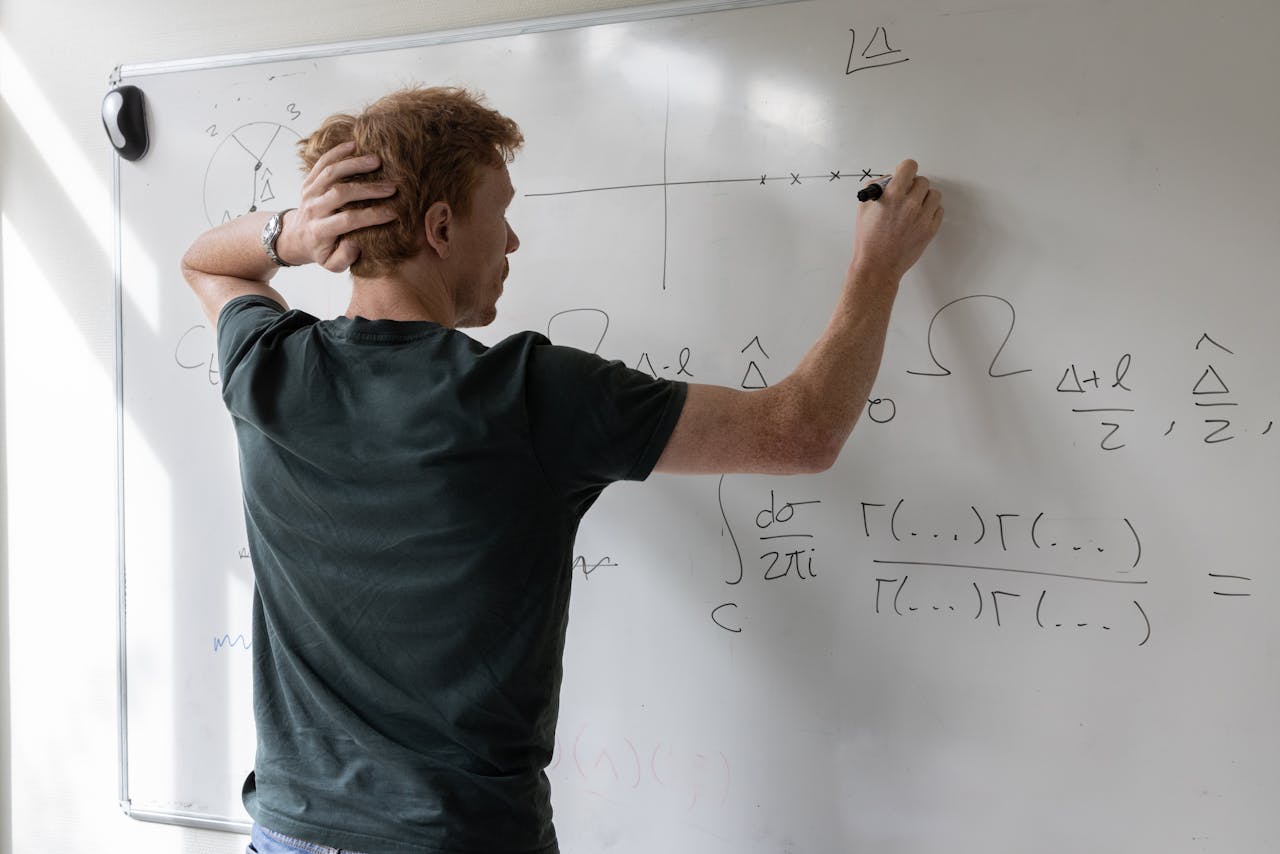 Δ
2 3
Δ̂
x x x x
C
Ω Δ-l Δ̂ Ω Δ+l/2 , Δ̂/2 ,
0
∫ dσ/2πi Γ(...)Γ(...)/Γ(...)Γ(...) =
C